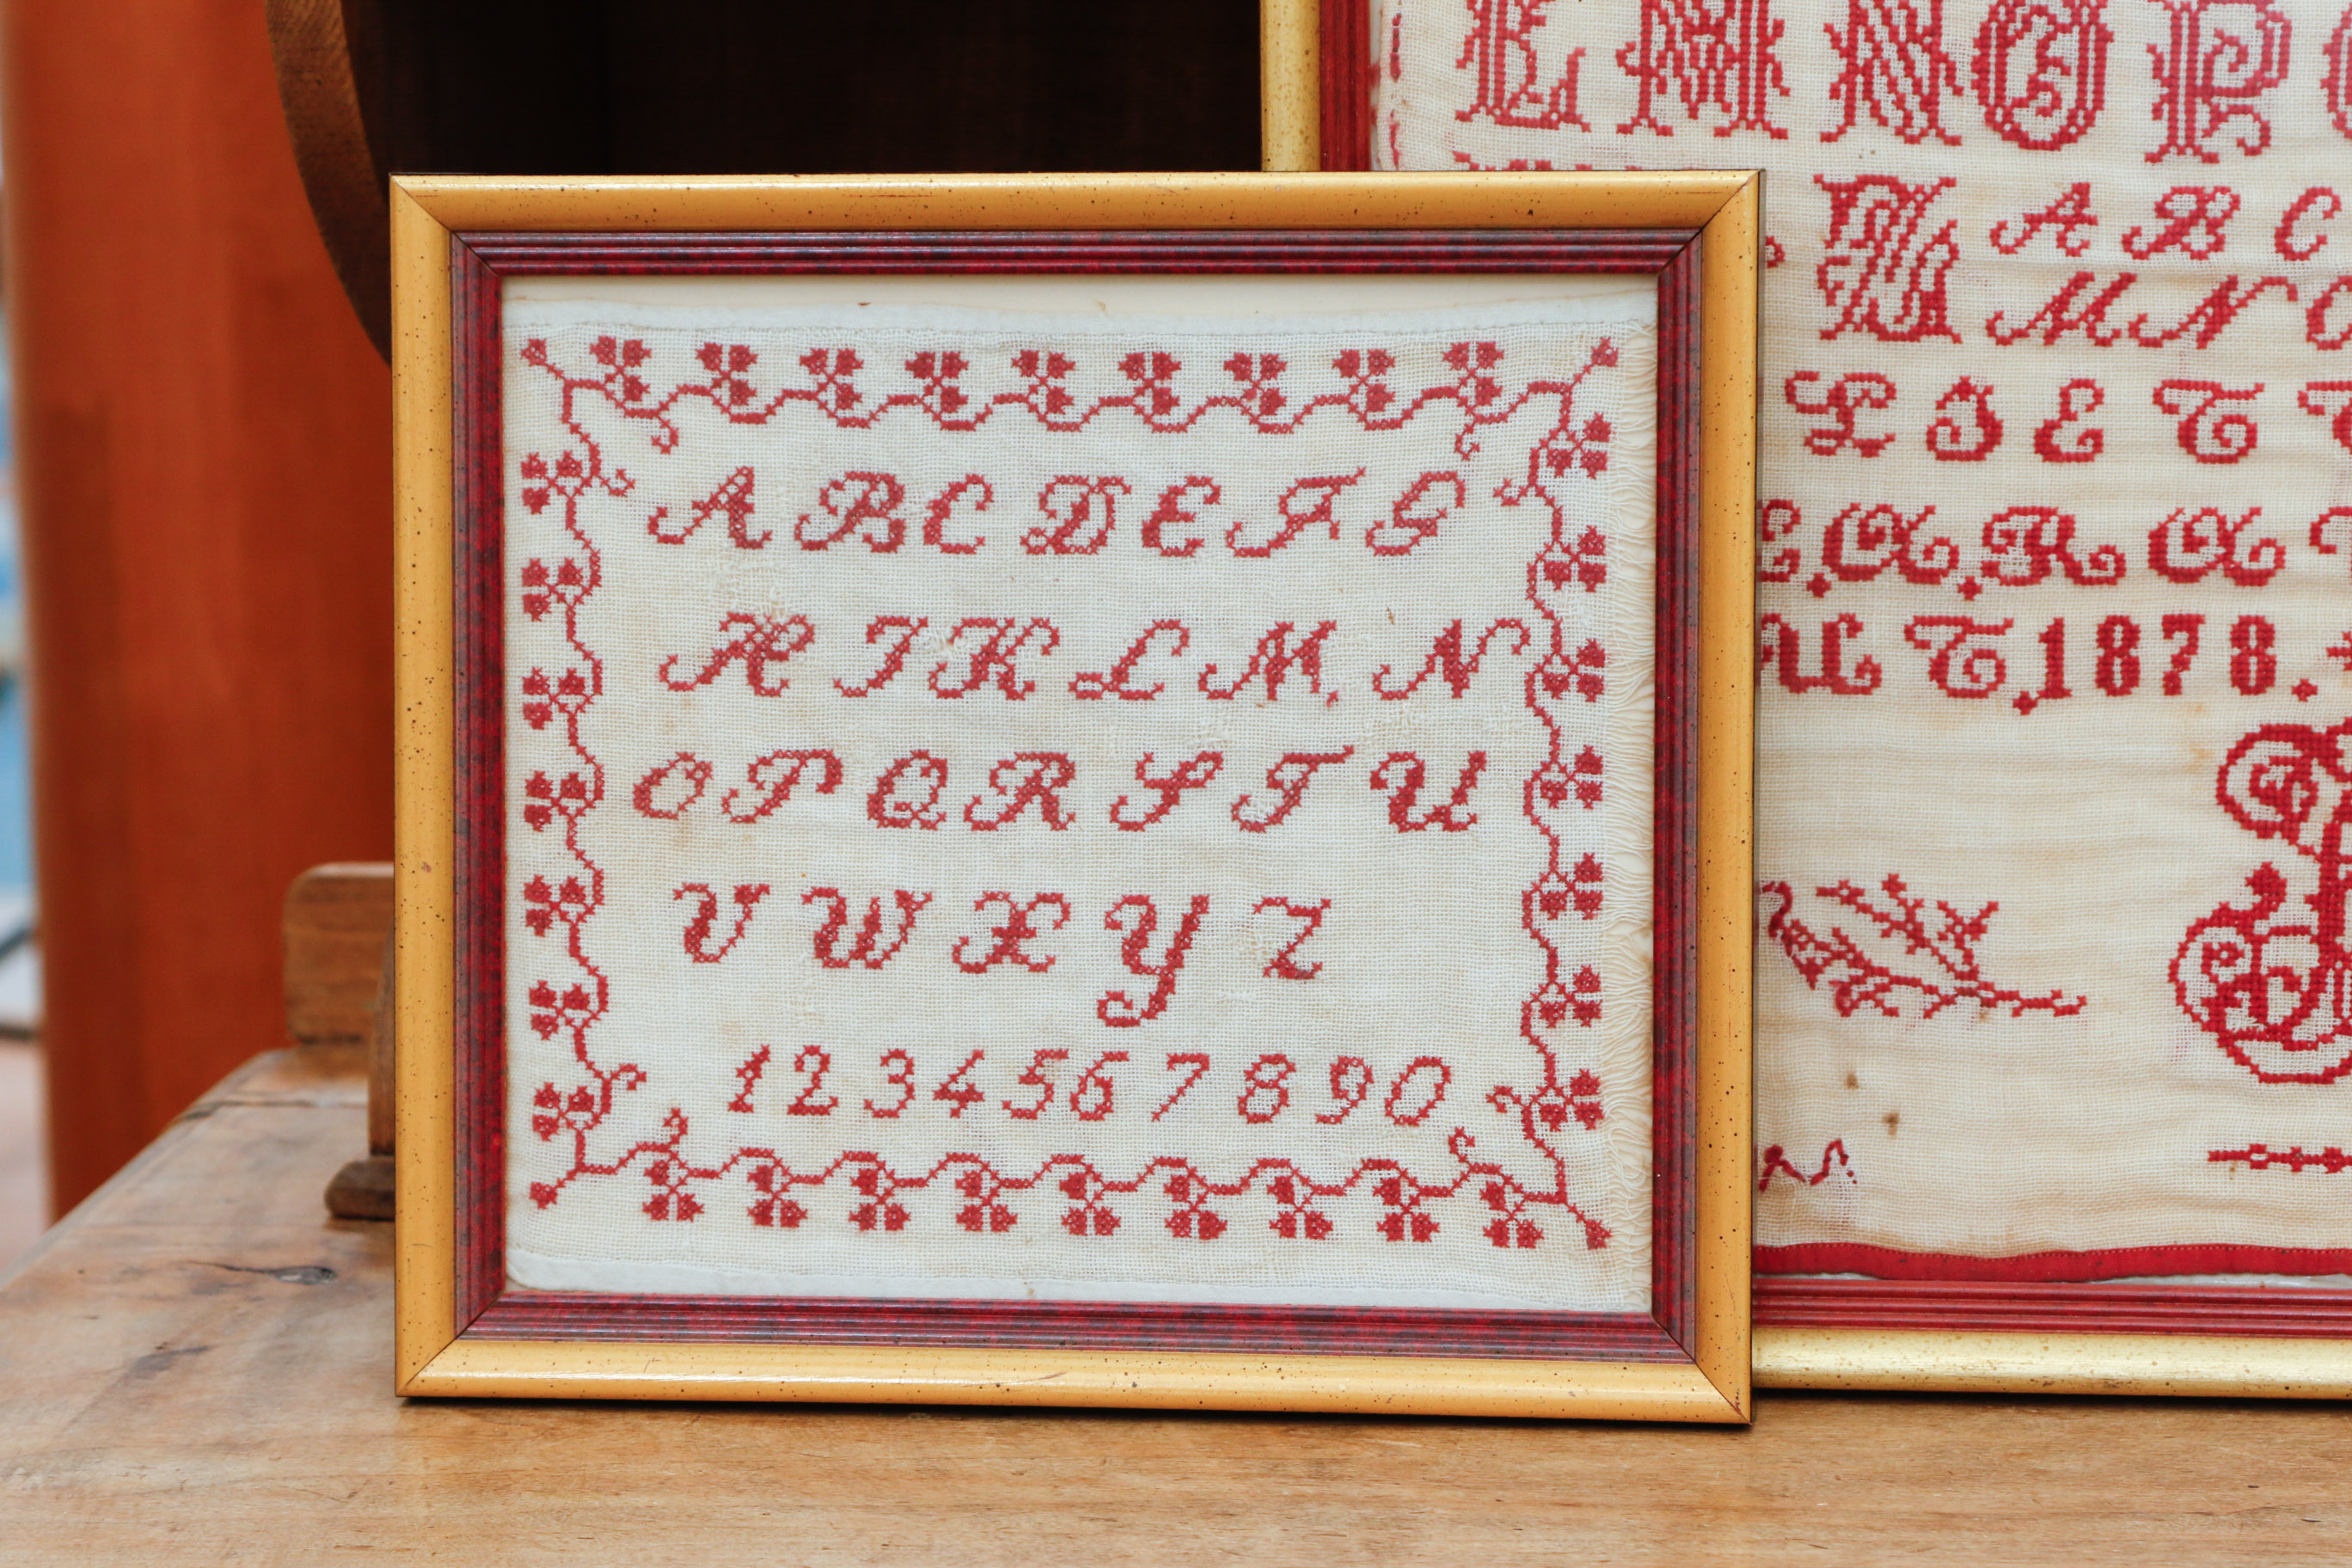 L M N O P
A B C
M N
A B C D E F G
H I K L M N
O P Q R S T U
V W X Y Z
1 2 3 4 5 6 7 8 9 0
T.1878.